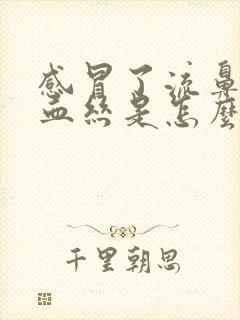 感冒了流鼻
血丝是怎麼
千里朝思